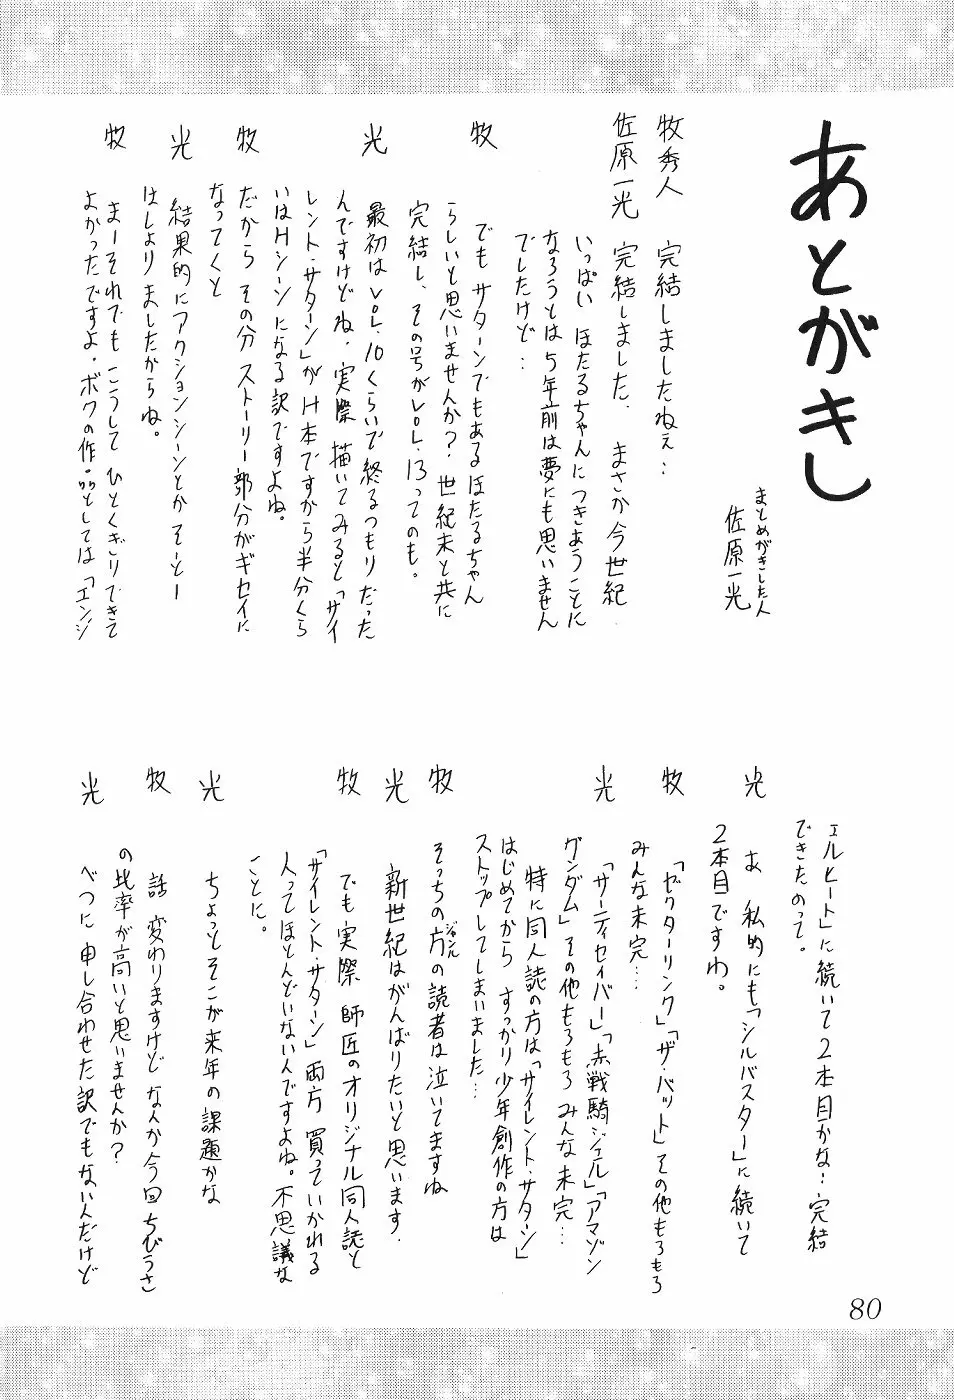 あとがきし
まとめがきした人
佐原一光
牧秀人　完結しましたねぇ…
佐原一光　完結しました、まさか今世紀
いっぱい ほたるちゃんにつきあうことに
なろうとは5年前は夢にも思いません
でしたけど…
牧　でもサターンでもあるほたるちゃん
らしいと思いませんか？世紀末と共に
完結し、その号がVOL.13ってのも。
光　最初はVOL.10くらいで終るつもりだった
んですけどね、実際描いてみると「サイ
レント・サターン」がH本ですから半分くら
いはHシーンになる訳ですよね。
牧　だから その分 ストーリー部分がギセイに
なってくと
光　結果的にアクションシーンとか そーとー
はしょりましたからね。
牧　まーそれでも こうして ひとくぎりできて
よかったですよ、ボクの作品としては「エンジ
ェルヒート」に続いて2本目かな…完結
できたのって。
光　あ 私的にも「シルバスター」に続いて
2本目ですわ。
牧　「ゼクターリンク」「ザ・バット」その他もろもろ
みんな未完…
光　「サーティセイバー」「赤戦騎ジェル」「アマゾン
ガンダム」その他もろもろ みんな未完…
特に同人誌の方は「サイレント・サターン」
はじめてから すっかり少年創作の方は
ストップしてしまいました…
牧　そっちの方の読者は泣いてますね
ジャンル
光　新世紀はがんばりたいと思います.
牧　でも実際 師匠のオリジナル同人誌と
「サイレント・サターン」両方 買っていかれる
人ってほとんどいないんですよね。不思議な
ことに。
光　ちょっとそこが来年の課題かな
牧　話 変わりますけど なんか今回ちびうさ
の比率が高いと思いませんか？
光　べつに申し合わせた訳でもないんだけど
80